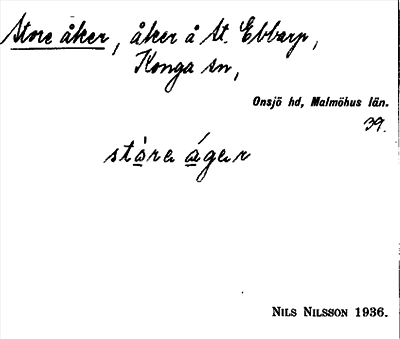 Store åker, åker å St. Ebbarp,
Konga sn,
Onsjö hd, Malmöhus län.
39.
stòra ágar
NILS NILSSON 1936.